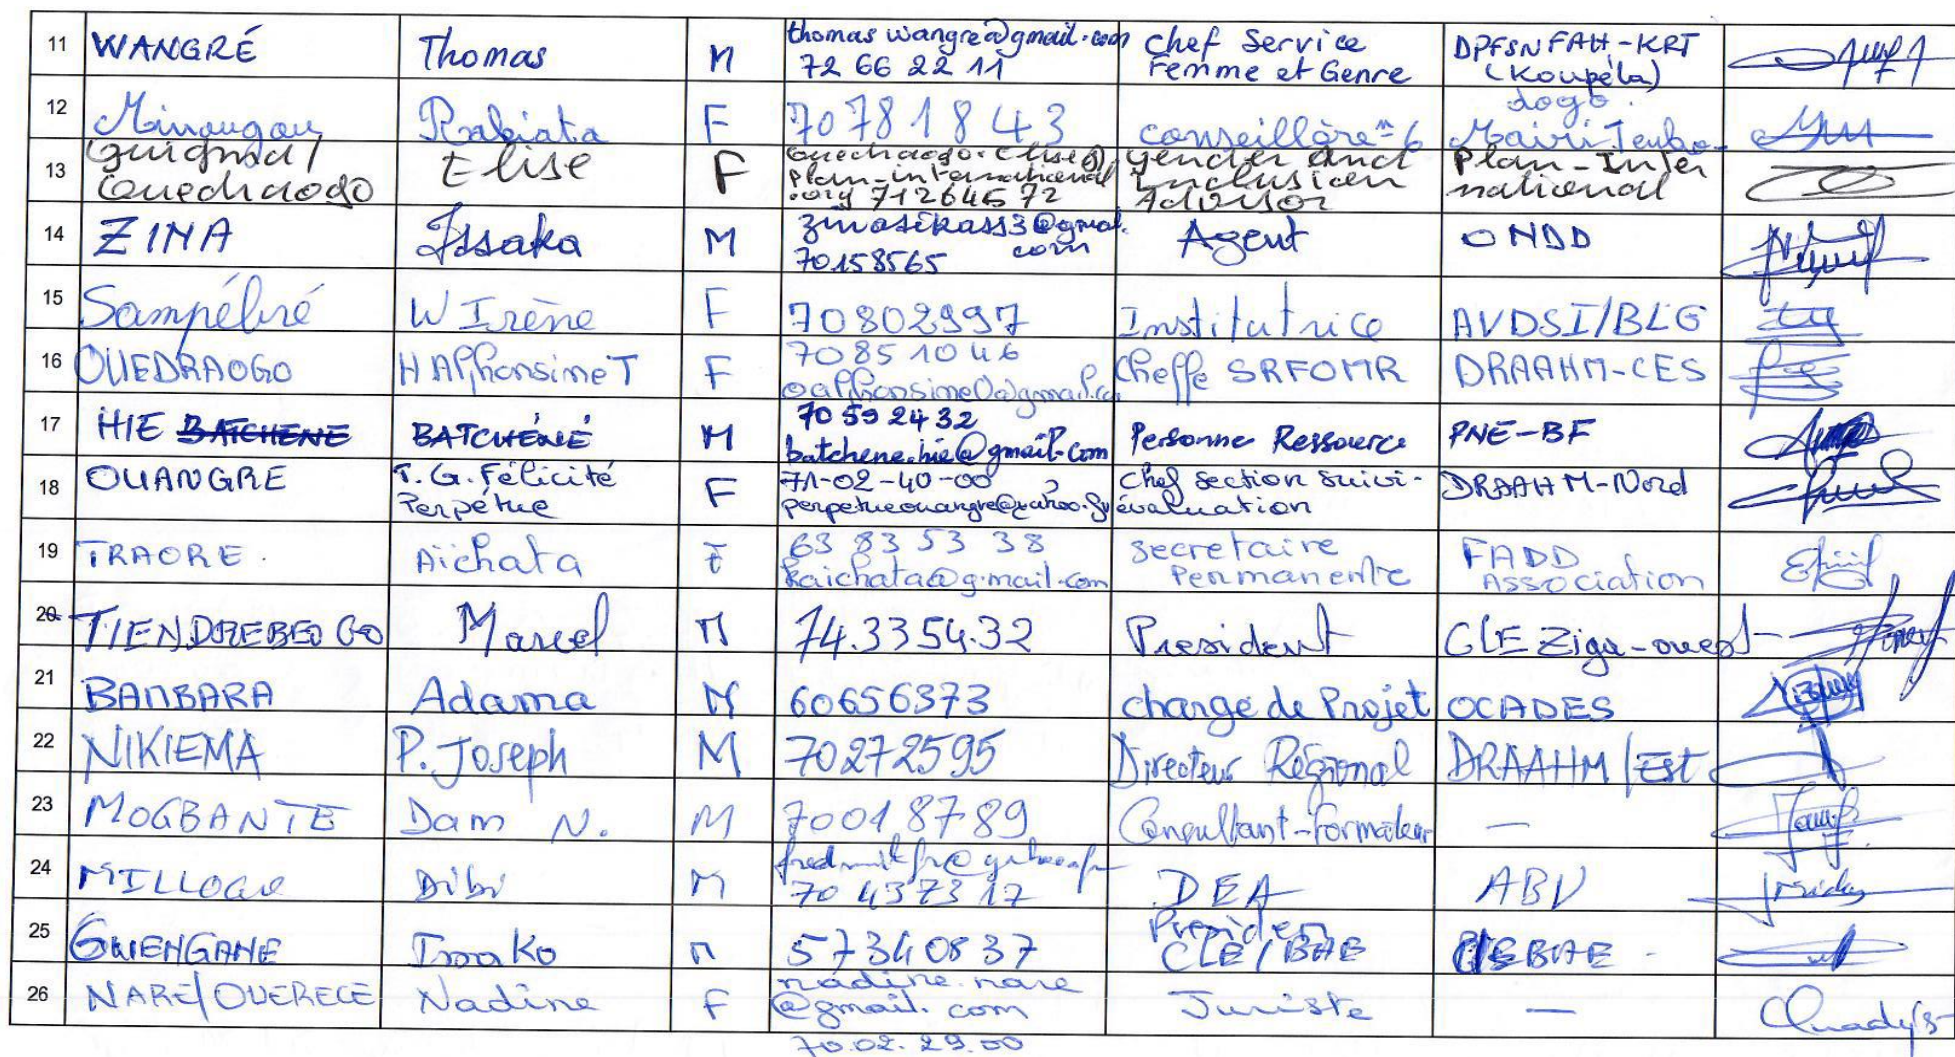 11 WANGRÉ Thomas M thomaswangre@gmail.com 72 66 22 11 chef Service Femme et Genre DPFSNFAH-KRT (Koupéla)
12 Minougou Rabiata F 70781843 conseillère Mairie Tenkodogo.
13 Guigma/ Ouedraogo Elise F Ouedraogo.Elise@ plan-international .org 71264572 gender and Inclusion Advisor Plan-Inter national
14 ZINA Issaka M 70158565 Agent ONDD
15 Sampébré W Irène F 70802997 Institutrice AVDSI/BLG
16 OUEDRAOGO H Alphonsine T F 70851046 Cheffe SRFOMR DRAAHM-CES
17 HIE BATCHENE BATCHÉNÉ M 70 59 24 32 batchene.hie@gmail.com Personne Ressource PNE-BF
18 OUANGRE T. G. Félicité Perpétue F 71-02-40-00 perpetueouangre@yahoo.fr chef section suivi-évaluation DRAAHM-Nord
19 TRAORE. Aïchata F 63 83 53 38 kaichata@g.mail.com secretaire Permanente FADD Association
20 TIENDREBEOGO Marcel M 74.33.54.32 President CLE Ziga-ouest
21 BAMBARA Adama M 60656373 chargé de Projet OCADES
22 NIKIEMA P. Joseph M 70272595 Directeur Régional DRAAHM/Est
23 MOGBANTE Dam N. M 70018789 Consultant-Formateur —
24 MILLOGO Dibi M 70 437317 DEA ABV
25 GUENGANE Issako M 57340837 Presiden CLE/BAE
26 NARE/OUERECE Nadine F nadine.nare @gmail.com Juriste —
70.02.29.00